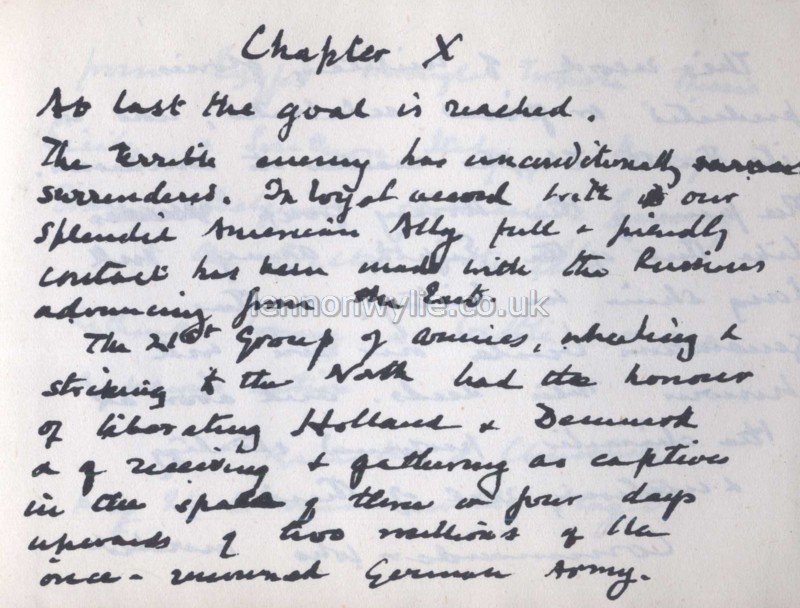 Chapter X
At last the goal is reached.
The terrible enemy has unconditionally
surrendered. In loyal accord with our
splendid American Ally full & friendly
contact has been made with the Russians
advancing from the East.
lennonwylie.co.uk
The 21st Group of armies, wheeling &
striking to the North had the honour
of liberating Holland & Denmark
& of receiving & gathering as captives
in the space of three or four days
upwards of two millions of the
once-renowned German Army.